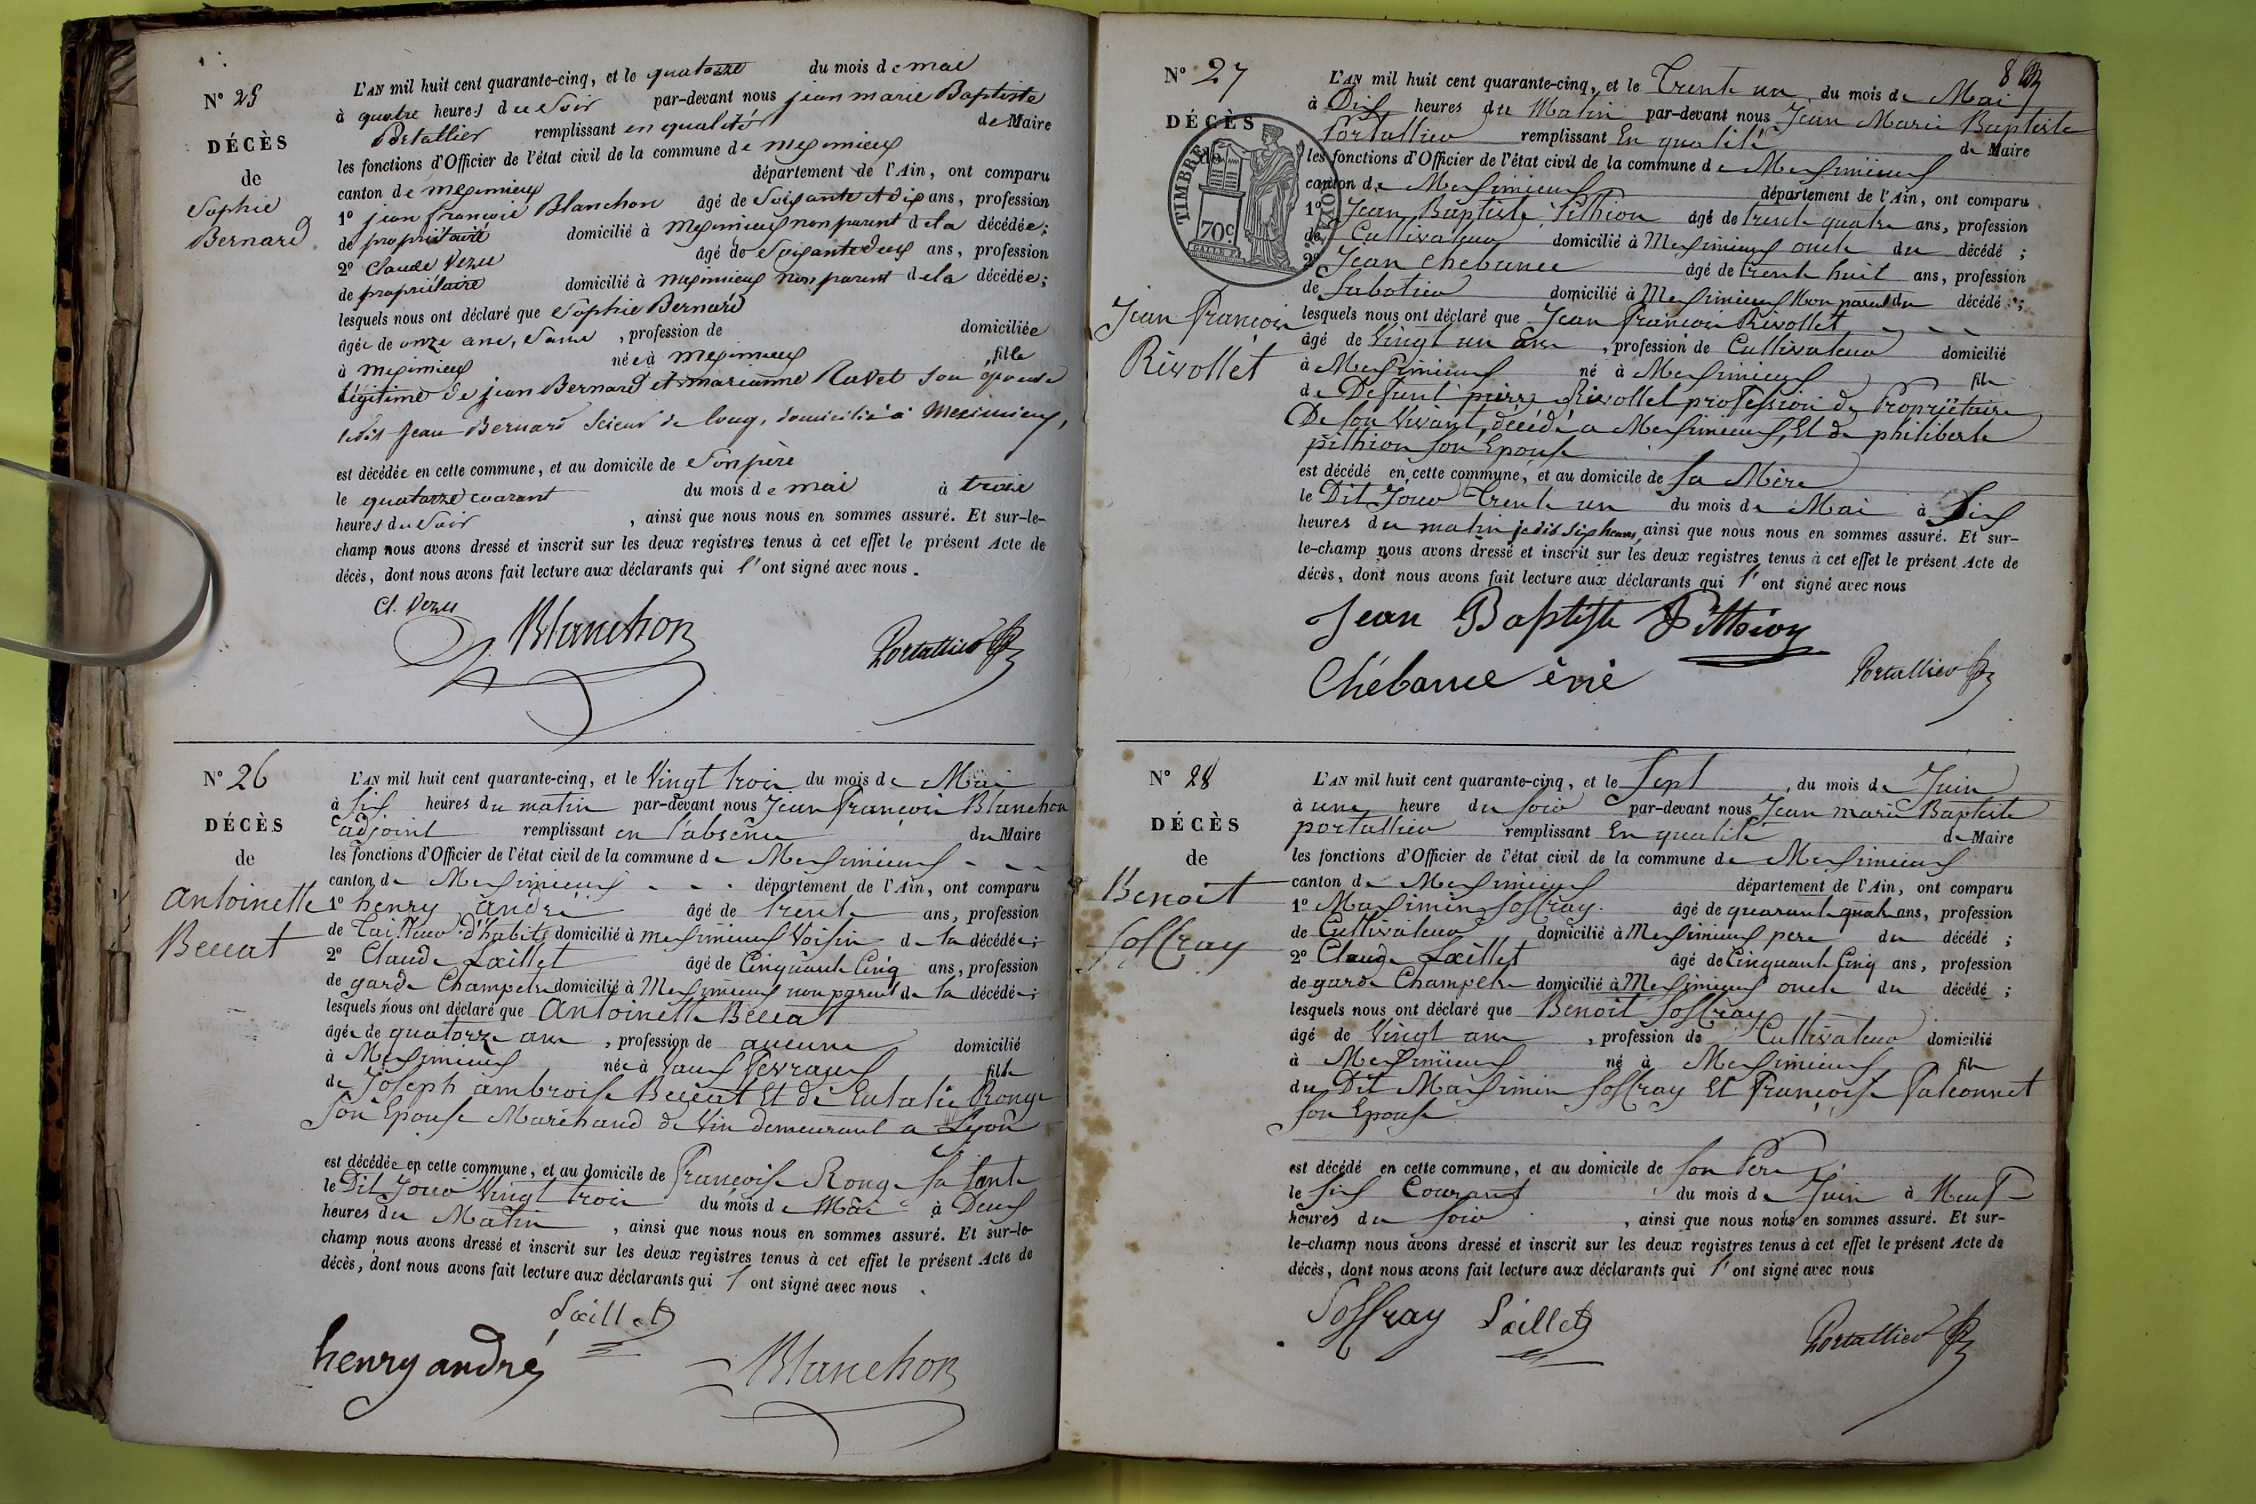 N° 25
DÉCÈS
de
Sophie
Bernard
L'AN mil huit cent quarante-cinq, et le quatorze du mois de mai
à quatre heures du Soir par-devant nous jean marie Baptiste
Portallier remplissant en qualité de Maire
les fonctions d'Officier de l'état civil de la commune de meximieux
canton de meximieux département de l'Ain, ont comparu
1° jean françois Blanchon âgé de Soixante et dix ans, profession
de propriétaire domicilié à meximieux non parent de la décédée;
2° Claude Vezu âgé de Soixante deux ans, profession
de propriétaire domicilié à meximieux non parent de la décédée;
lesquels nous ont déclaré que Sophie Bernard
âgée de onze ans, Sans , profession de domiciliée
à meximieux née à meximieux , fille
légitime de jean Bernard et marianne Ravet son épouse
ledit Jean Bernard Scieur de long, domicilié à Meximieux,
est décédée en cette commune, et au domicile de Son père
le quatorze courant du mois de mai à trois
heures du Soir , ainsi que nous nous en sommes assuré. Et sur-le-
champ nous avons dressé et inscrit sur les deux registres tenus à cet effet le présent Acte de
décès, dont nous avons fait lecture aux déclarants qui l'ont signé avec nous.
Cl. Vezu
Blanchon
Portallier
N° 26
DÉCÈS
de
Antoinette
Beccat
L'AN mil huit cent quarante-cinq, et le Vingt trois du mois de Mai
à Six heures du matin par-devant nous Jean françois Blanchon
adjoint remplissant en l'absence du Maire
les fonctions d'Officier de l'état civil de la commune de Meximieux
canton de Meximieux département de l'Ain, ont comparu
1° henry andré âgé de trente ans, profession
de Tailleur d'habits domicilié à Meximieux Voisin de la décédée;
2° Claude Lœillet âgé de Cinquante Cinq ans, profession
de garde Champetre domicilié à Meximieux non parent de la décédée;
lesquels nous ont déclaré que Antoinette Beccat
âgée de quatorze ans , profession de aucune domicilié
à Meximieux née à Vaux fevroux fille
de Joseph ambroise Beccat Et de Eulalie Ronge
son Epouse Marchand de Vin demeurant a Lyon
est décédée en cette commune, et au domicile de Françoise Ronge sa tante
le Dit Jour Vingt trois du mois de Mai à Deux
heures du Matin , ainsi que nous nous en sommes assuré. Et sur-le-
champ nous avons dressé et inscrit sur les deux registres tenus à cet effet le présent Acte de
décès, dont nous avons fait lecture aux déclarants qui l'ont signé avec nous
Lœillet
henry andré
Blanchon
8
N° 27
DÉCÈS
de
TIMBRE
70c
LYON
Jean françois
Rivollet
L'AN mil huit cent quarante-cinq, et le Trente un du mois de Mai
à Dix heures du Matin par-devant nous Jean Marie Baptiste
Portallier remplissant En qualité de Maire
les fonctions d'Officier de l'état civil de la commune de Meximieux
canton de Meximieux département de l'Ain, ont comparu
1° Jean Baptiste Pithion âgé de trente quatre ans, profession
de Cultivateur domicilié à Meximieux oncle du décédé;
2° Jean Chebance âgé de trente huit ans, profession
de Sabotier domicilié à Meximieux Non parent du décédé;
lesquels nous ont déclaré que Jean françois Rivollet
âgé de Vingt un ans , profession de Cultivateur domicilié
à Meximieux né à Meximieux fils
de Defunt pierre Rivollet profession de Propriétaire
De son Vivant, décédé a Meximieux, Et de philiberte
pithion son Epouse
est décédé en cette commune, et au domicile de sa Mère
le Dit Jour Trente un du mois de Mai à Six
heures du matin je dis Six heures, ainsi que nous nous en sommes assuré. Et sur-
le-champ nous avons dressé et inscrit sur les deux registres tenus à cet effet le présent Acte de
décès, dont nous avons fait lecture aux déclarants qui l'ont signé avec nous
Jean Baptiste Pithion
Chébance
Portallier
N° 28
DÉCÈS
de
Benoit
Soffray
L'AN mil huit cent quarante-cinq, et le Sept du mois de Juin
à une heure du soir par-devant nous Jean marie Baptiste
portallier remplissant En qualité de Maire
les fonctions d'Officier de l'état civil de la commune de Meximieux
canton de Meximieux département de l'Ain, ont comparu
1° Maximin Soffray âgé de quarante quatre ans, profession
de Cultivateur domicilié à Meximieux pere du décédé;
2° Claude Lœillet âgé de Cinquante Cinq ans, profession
de garde Champetre domicilié à Meximieux oncle du décédé;
lesquels nous ont déclaré que Benoit Soffray
âgé de Vingt ans , profession de Cultivateur domicilié
à Meximieux né à Meximieux fils
du Dit Maximin Soffray Et françoise Falconnet
son Epouse
est décédé en cette commune, et au domicile de son Pere
le six Courant du mois de Juin à Neuf
heures du soir , ainsi que nous nous en sommes assuré. Et sur-
le-champ nous avons dressé et inscrit sur les deux registres tenus à cet effet le présent Acte de
décès, dont nous avons fait lecture aux déclarants qui l'ont signé avec nous
Soffray Lœillet
Portallier